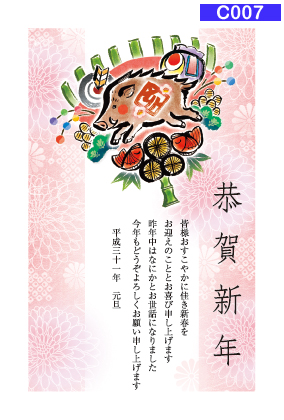 C007
恭賀新年
皆様おすこやかに佳き新春を
お迎えのこととお喜び申し上げます
昨年中はなにかとお世話になりました
今年もどうぞよろしくお願い申し上げます
平成三十一年 元旦